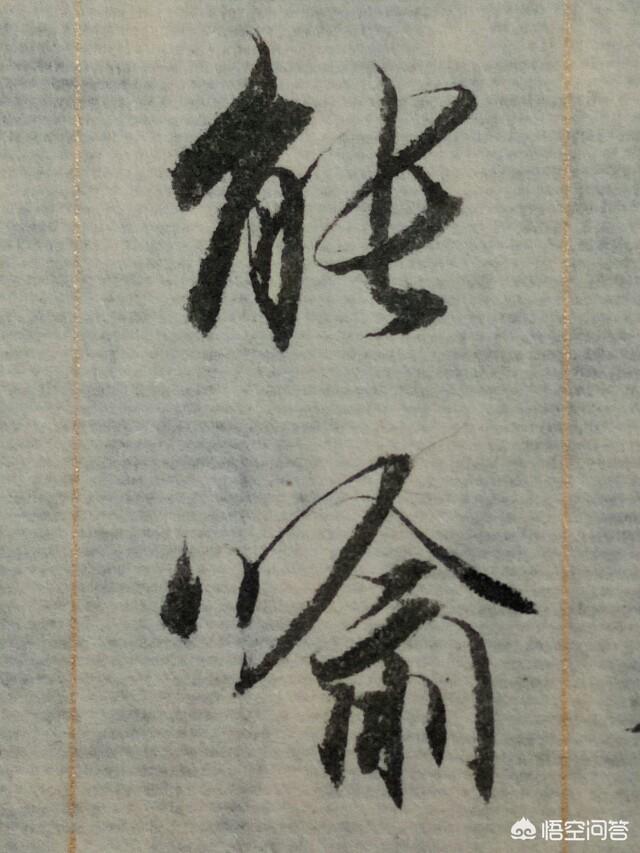 能
喻
悟空问答